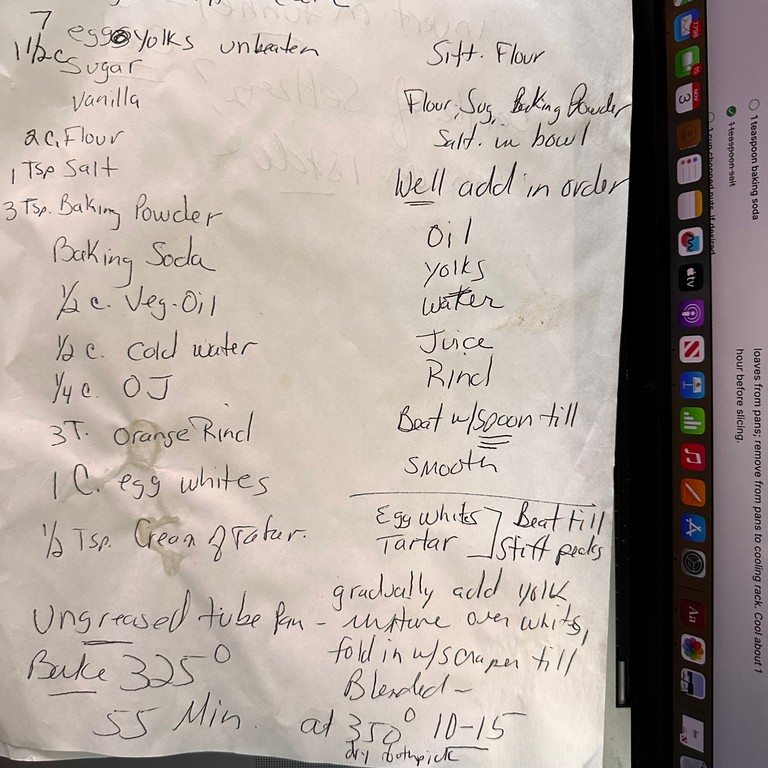 7 egg yolks unbeaten
1 1/2 c Sugar
Vanilla
2 c. Flour
1 Tsp Salt
3 Tsp. Baking Powder
Baking Soda
1/2 c. Veg-Oil
1/2 c. Cold water
1/4 c. OJ
3T. Orange Rind
1 C. egg whites
1/2 Tsp. Cream of Tatar.
Sift. Flour
Flour, Sug, Baking Powder
Salt. in bowl
Well add in order
Oil
yolks
water
Juice
Rind
Beat w/spoon till
smooth
Egg whites ] Beat till
Tartar ] Stiff peaks
gradually add yolk
Ungreased tube pan - mixture over whites,
fold in w/scraper till
Blended-
Bake 325°
55 Min. at 350° 10-15
dry toothpick
1 teaspoon baking soda
1 teaspoon salt
loaves from pans; remove from pans to cooling rack. Cool about 1
hour before slicing.
NOV
3
tv
Aa